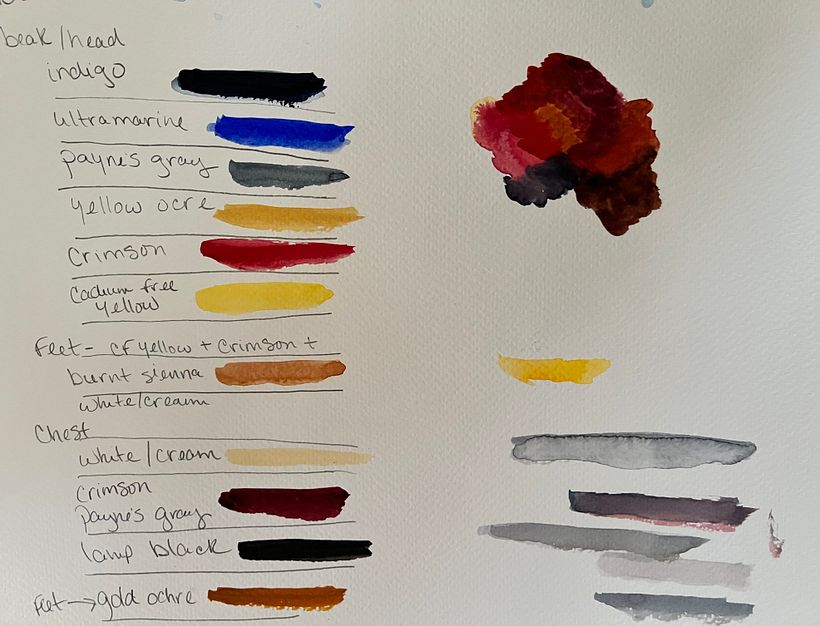 beak/head
indigo
ultramarine
payne's gray
yellow ocre
crimson
Cadium free
yellow
Feet- CF yellow + Crimson +
burnt sienna
white/cream
Chest
white/cream
crimson
payne's gray
lamp black
Feet → gold ochre